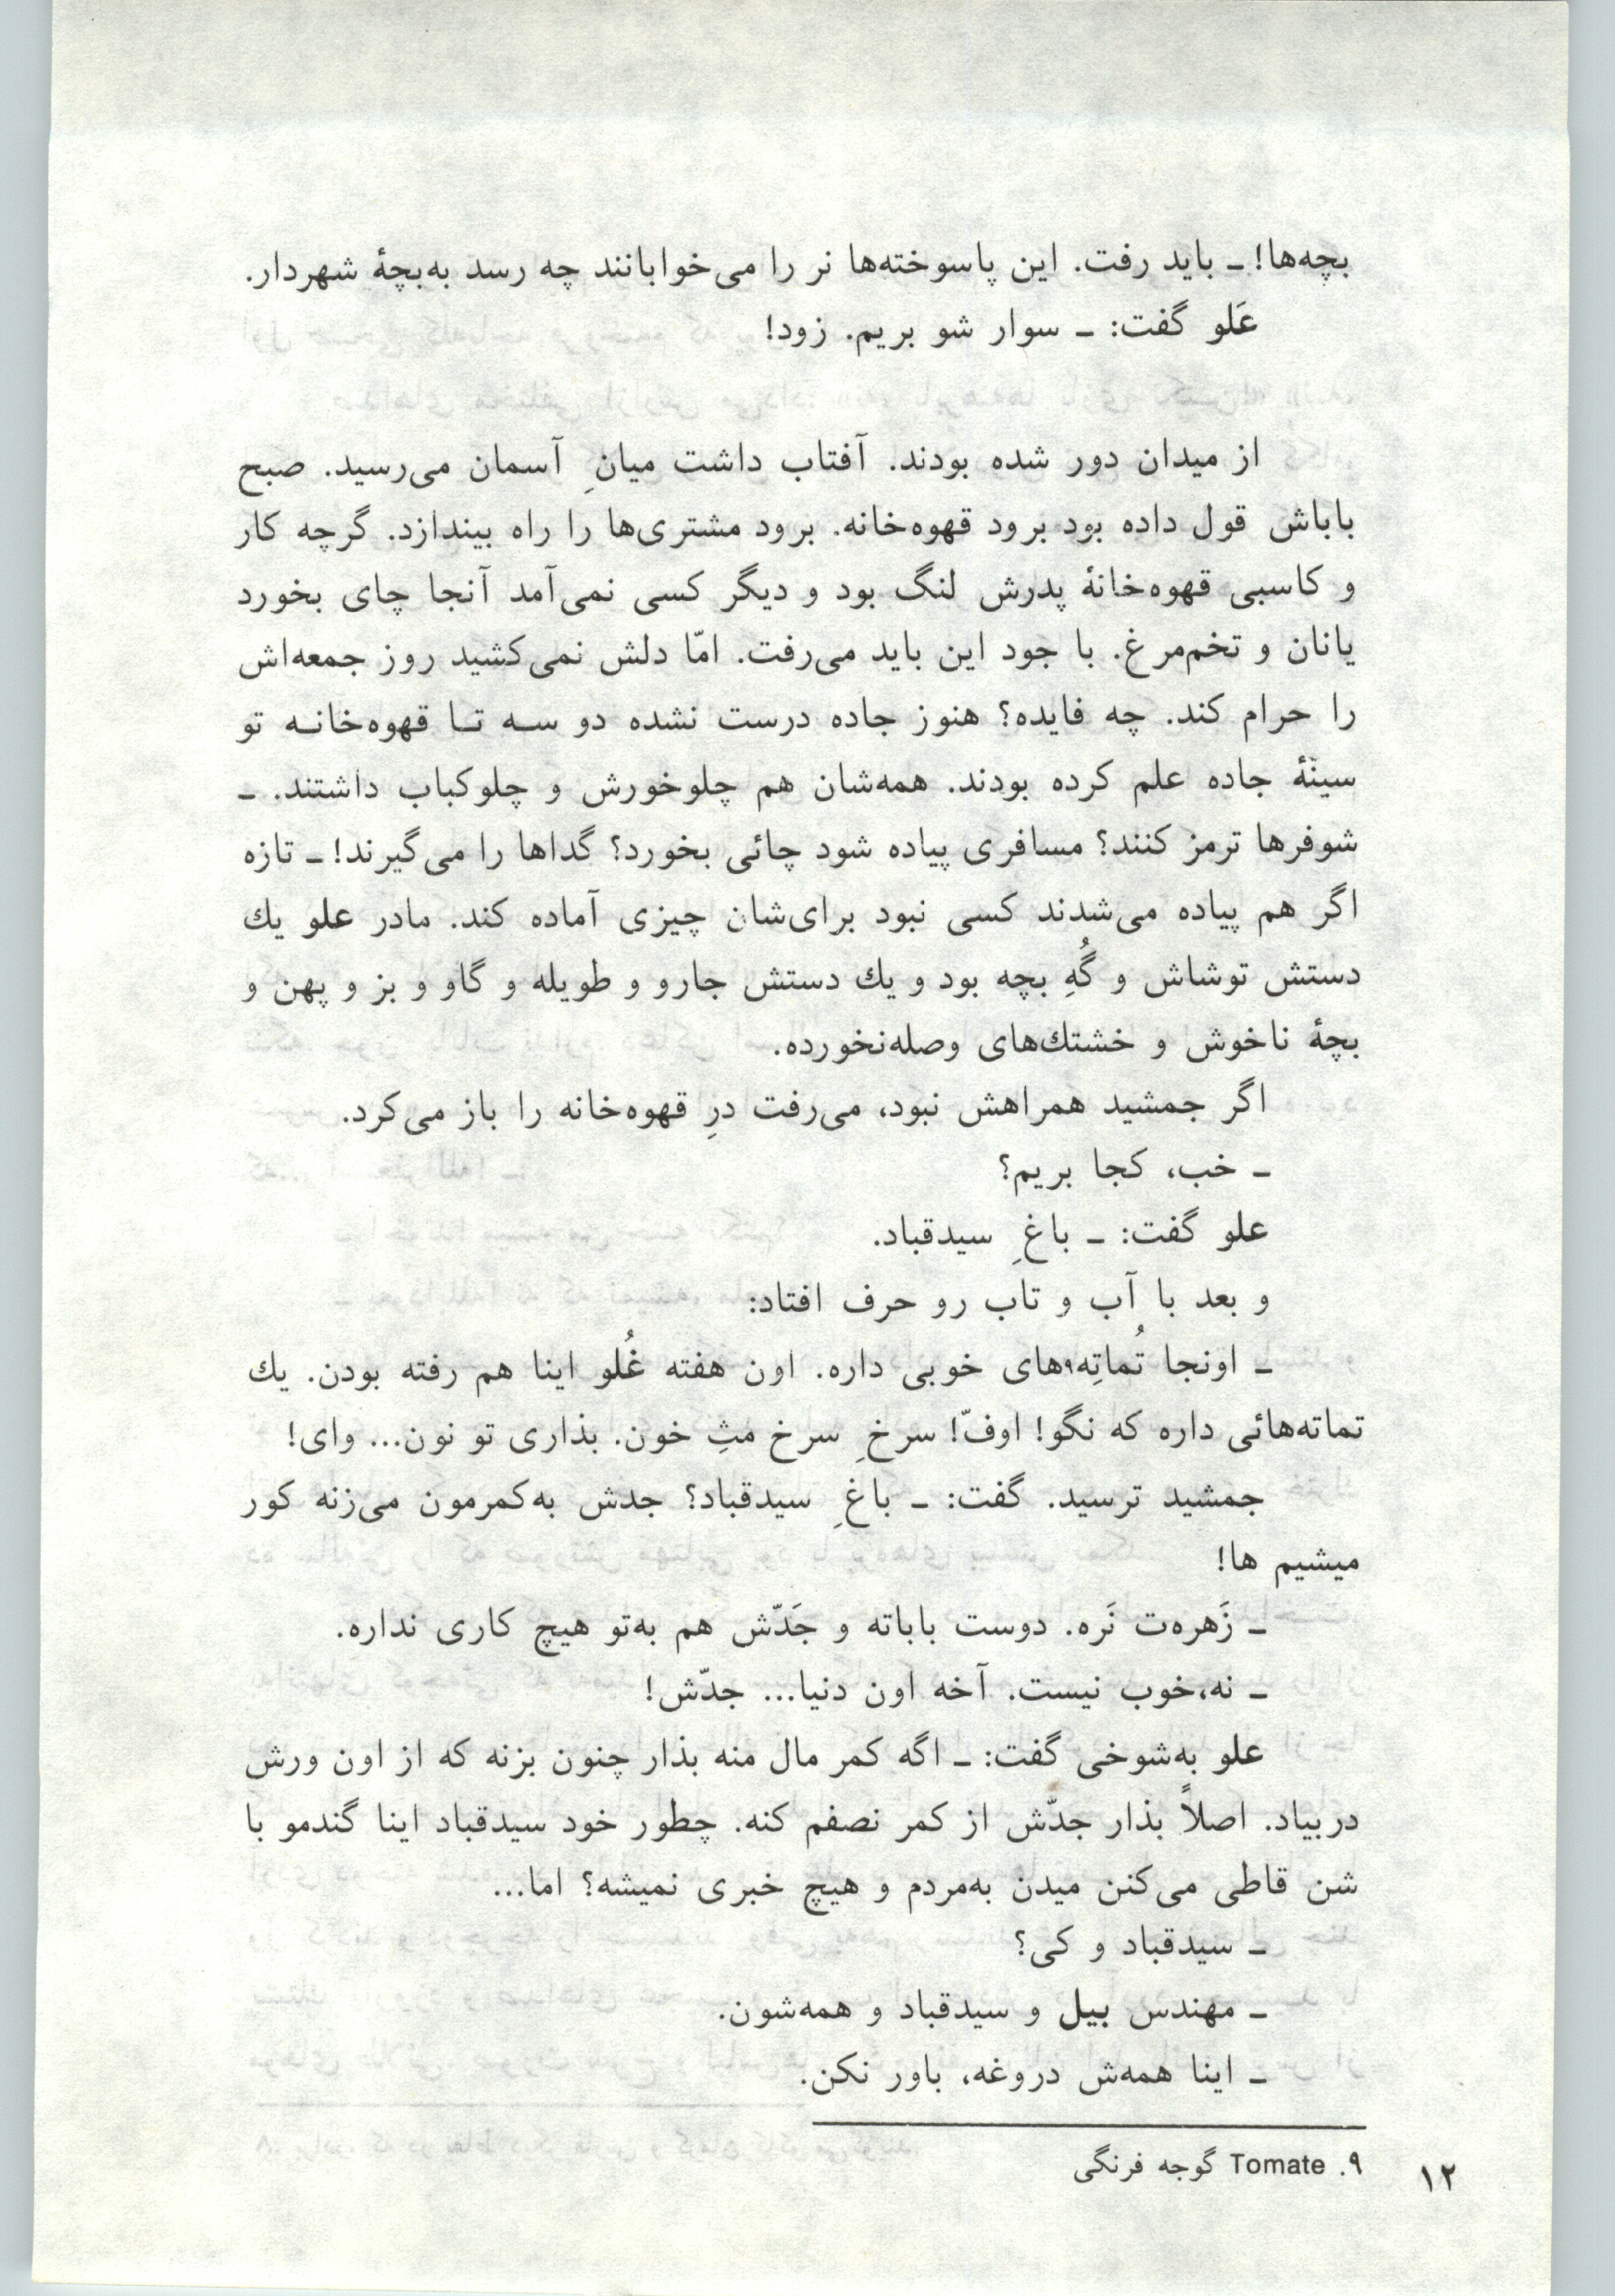 بچه‌ها! ـ باید رفت. این پاسوخته‌ها نر را می‌خوابانند چه رسد به‌بچهٔ شهردار.
عَلو گفت: ـ سوار شو بریم. زود!
از میدان دور شده بودند. آفتاب داشت میانِ آسمان می‌رسید. صبح
باباش قول داده بود برود قهوه‌خانه. برود مشتری‌ها را راه بیندازد. گرچه کار
و کاسبی قهوه‌خانهٔ پدرش لنگ بود و دیگر کسی نمی‌آمد آنجا چای بخورد
یانان و تخم‌مرغ. با جود این باید می‌رفت. امّا دلش نمی‌کشید روز جمعه‌اش
را حرام کند. چه فایده؟ هنوز جاده درست نشده دو سه تا قهوه‌خانه تو
سینهٔ جاده علم کرده بودند. همه‌شان هم چلوخورش و چلوکباب داشتند. ـ
شوفرها ترمز کنند؟ مسافری پیاده شود چائی بخورد؟ گداها را می‌گیرند! ـ تازه
اگر هم پیاده می‌شدند کسی نبود برای‌شان چیزی آماده کند. مادر علو یك
دستش توشاش و گُهِ بچه بود و یك دستش جارو و طویله و گاو و بز و پهن و
بچهٔ ناخوش و خشتك‌های وصله‌نخورده.
اگر جمشید همراهش نبود، می‌رفت درِ قهوه‌خانه را باز می‌کرد.
ـ خب، کجا بریم؟
علو گفت: ـ باغِ سیدقباد.
و بعد با آب و تاب رو حرف افتاد:
ـ اونجا تُماتِه۹های خوبی داره. اون هفته غُلو اینا هم رفته بودن. یك
تماته‌هائی داره که نگو! اوفّ! سرخِ سرخ مثِ خون. بذاری تو نون... وای!
جمشید ترسید. گفت: ـ باغِ سیدقباد؟ جدش به‌کمرمون می‌زنه کور
میشیم ها!
ـ زَهره‌ت نَره. دوست باباته و جَدّش هم به‌تو هیچ کاری نداره.
ـ نه،خوب نیست. آخه اون دنیا... جدّش!
علو به‌شوخی گفت: ـ اگه کمر مال منه بذار چنون بزنه که از اون ورش
دربیاد. اصلاً بذار جدّش از کمر نصفم کنه. چطور خود سیدقباد اینا گندمو با
شن قاطی می‌کنن میدن به‌مردم و هیچ خبری نمیشه؟ اما...
ـ سیدقباد و کی؟
ـ مهندس بیل و سیدقباد و همه‌شون.
ـ اینا همه‌ش دروغه، باور نکن.
۹. Tomate گوجه فرنگی
۱۲